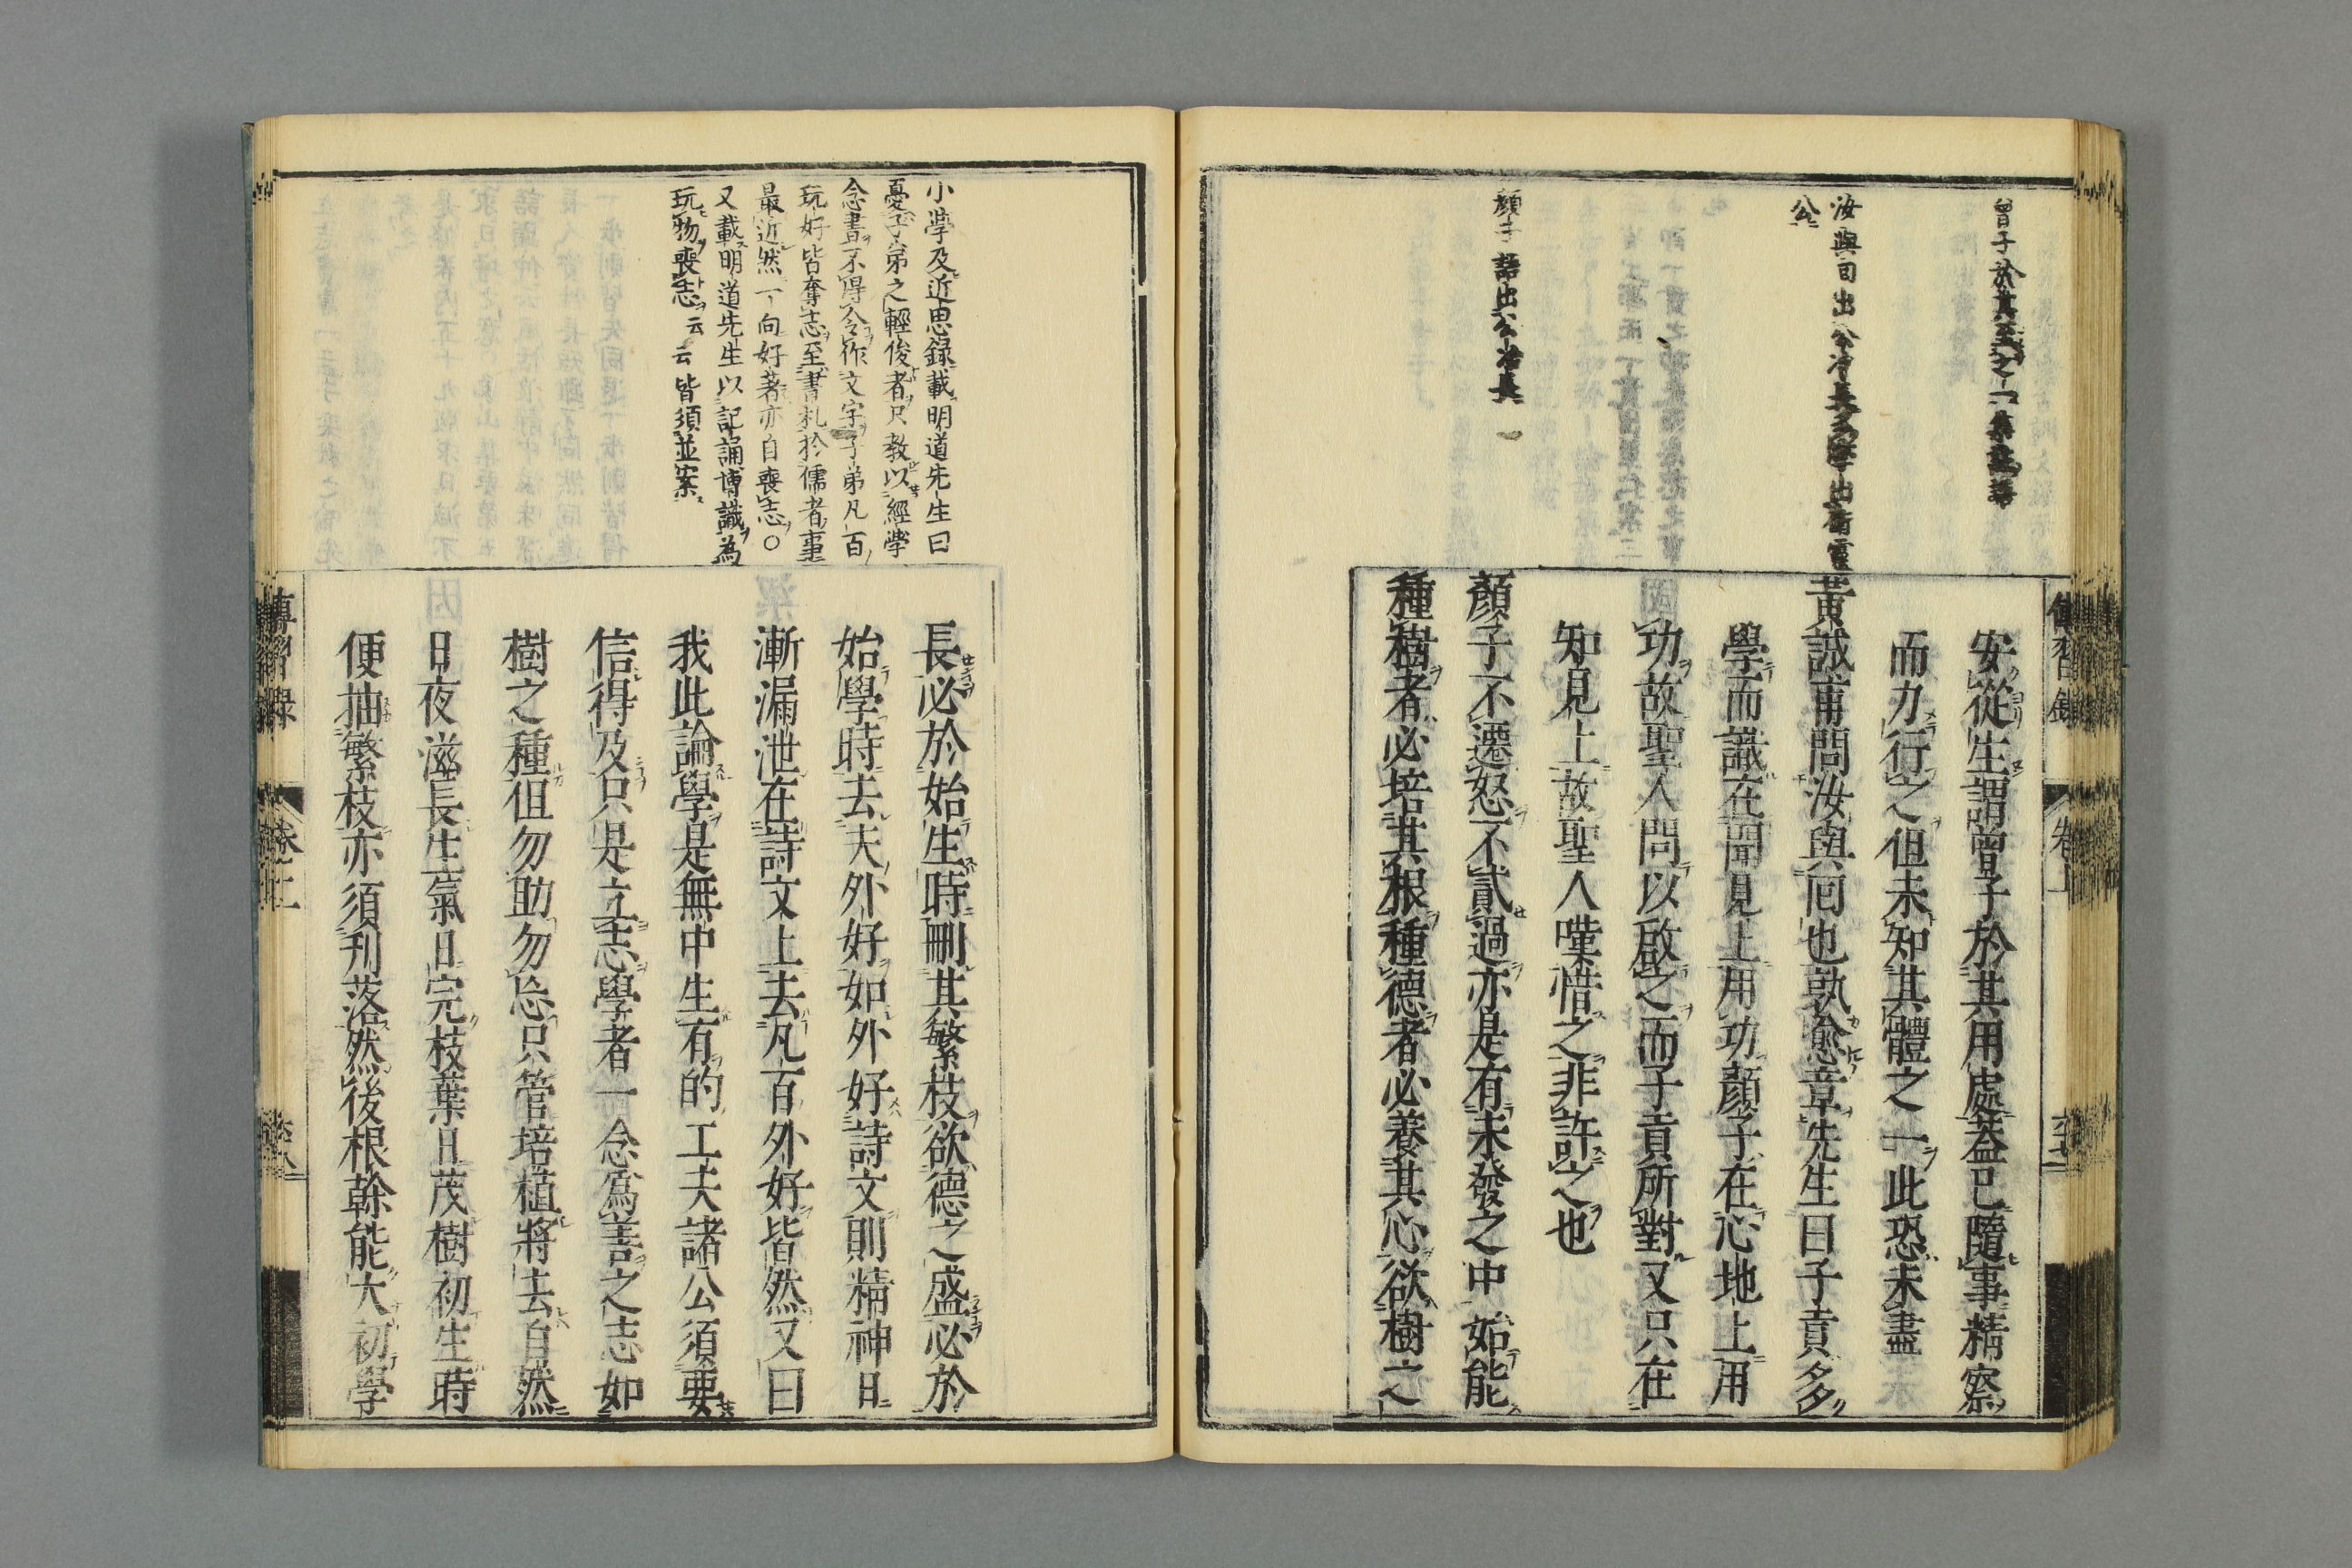 曾子於其至之一集註語
汝與回出公冶長多學出衞靈
公
顏子語出公冶長
安從生謂曾子於其用處蓋已隨事精察
而力行之但未知其體之一此恐未盡
黃誠甫問汝與回也孰愈章先生曰子貢多
學而識在聞見上用功顏子在心地上用
功故聖人問以啟之而子貢所對又只在
知見上故聖人嘆惜之非許之也
顏子不遷怒不貳過亦是有未發之中始能
種樹者必培其根種德者必養其心欲樹之
傳習錄
卷上
小學及近思錄載明道先生曰
憂子弟之輕俊者只教以經學
念書不得令作文字子弟凡百
玩好皆奪志至書札於儒者事
最近然一向好著亦自喪志○
又載明道先生以記誦博識為
玩物喪志云云皆須並案
長必於始生時刪其繁枝欲德之盛必於
始學時去夫外好如外好詩文則精神日
漸漏泄在詩文上去凡百外好皆然又曰
我此論學是無中生有的工夫諸公須要
信得及只是立志學者一念爲善之志如
樹之種但勿助勿忘只管培植將去自然
日夜滋長生氣日完枝葉日茂樹初生時
便抽繁枝亦須刋落然後根幹能大初學
傳習錄
卷上